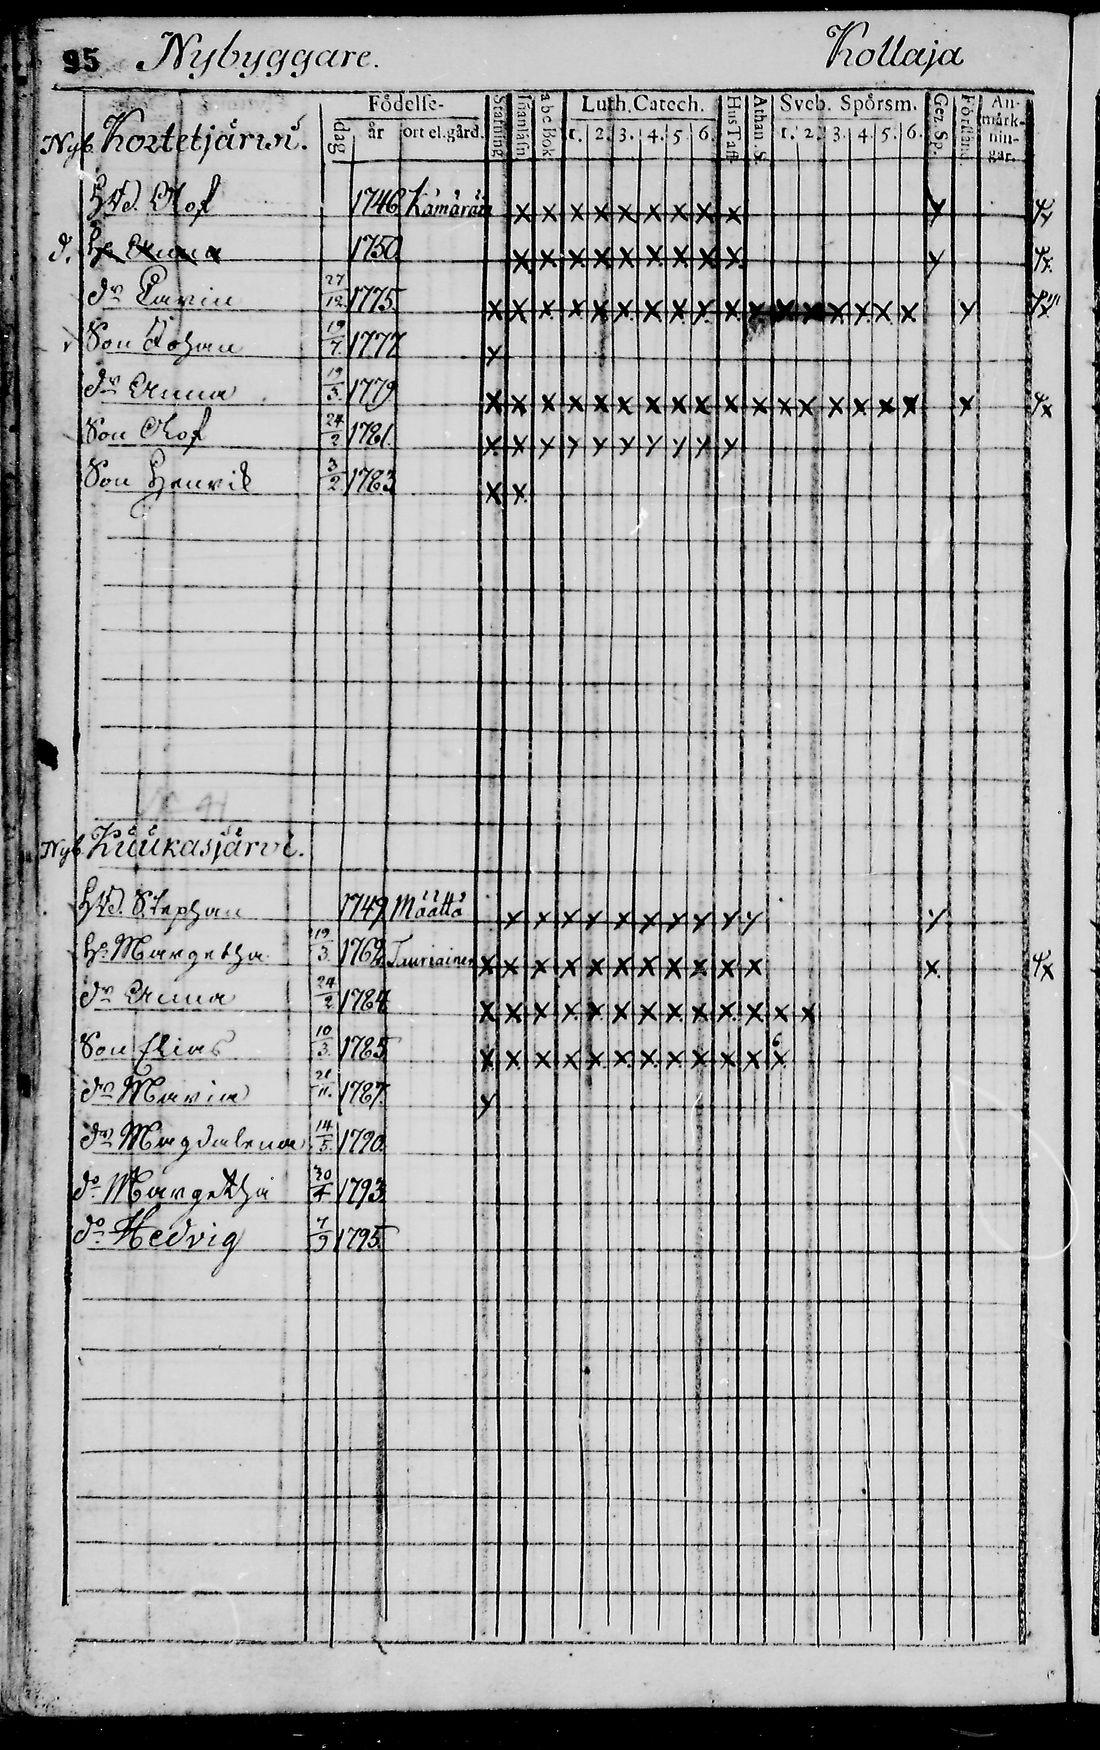 95 Nybyggare. Kollaja
Födelse- Stafning Innanläsn abc Bok Luth. Catech. Hus Tafl Athan. S. Sveb. Spörsm. Ger. Sp. Förstånd. An-märk-nin-gar.
dag år ort el. gård. 1. 2. 3. 4. 5 6. 1. 2. 3. 4. 5. 6.
Nyb. Kortetjärwi.
Hbd. Olof 1746 Kämäräin x x x x x x x x x y
d. H. Anna 1750. x x x x x x x x x y
dr Carin 27/12 1775. x x x x x x x x x x x x x x x x x y
Son Johan 19/7 1777 y
dr Anna 19/3. 1779 x x x x x x x x x x x x x x x x x x
Son Olof 24/2 1781. x x y y y y y y y y
Son Henrik 3/2 1783 x x
Nyb. Kuukasjärvi.
Hbd. Stephan 1749 Määttä y y y y y y y y y y y
H. Margetha 19/3. 1762 Tauriainen x x x x x x x x x x x x
dr Anna 24/2 1784 x x x x x x x x x x x x x
Son Elias 10/3. 1785 x x x x x x x x x x x 6 x
dr Maria 21/11. 1787. y
dr Magdalena 14/5. 1790.
do Margetha 30/4 1793
do Hedvig 7/9 1795.